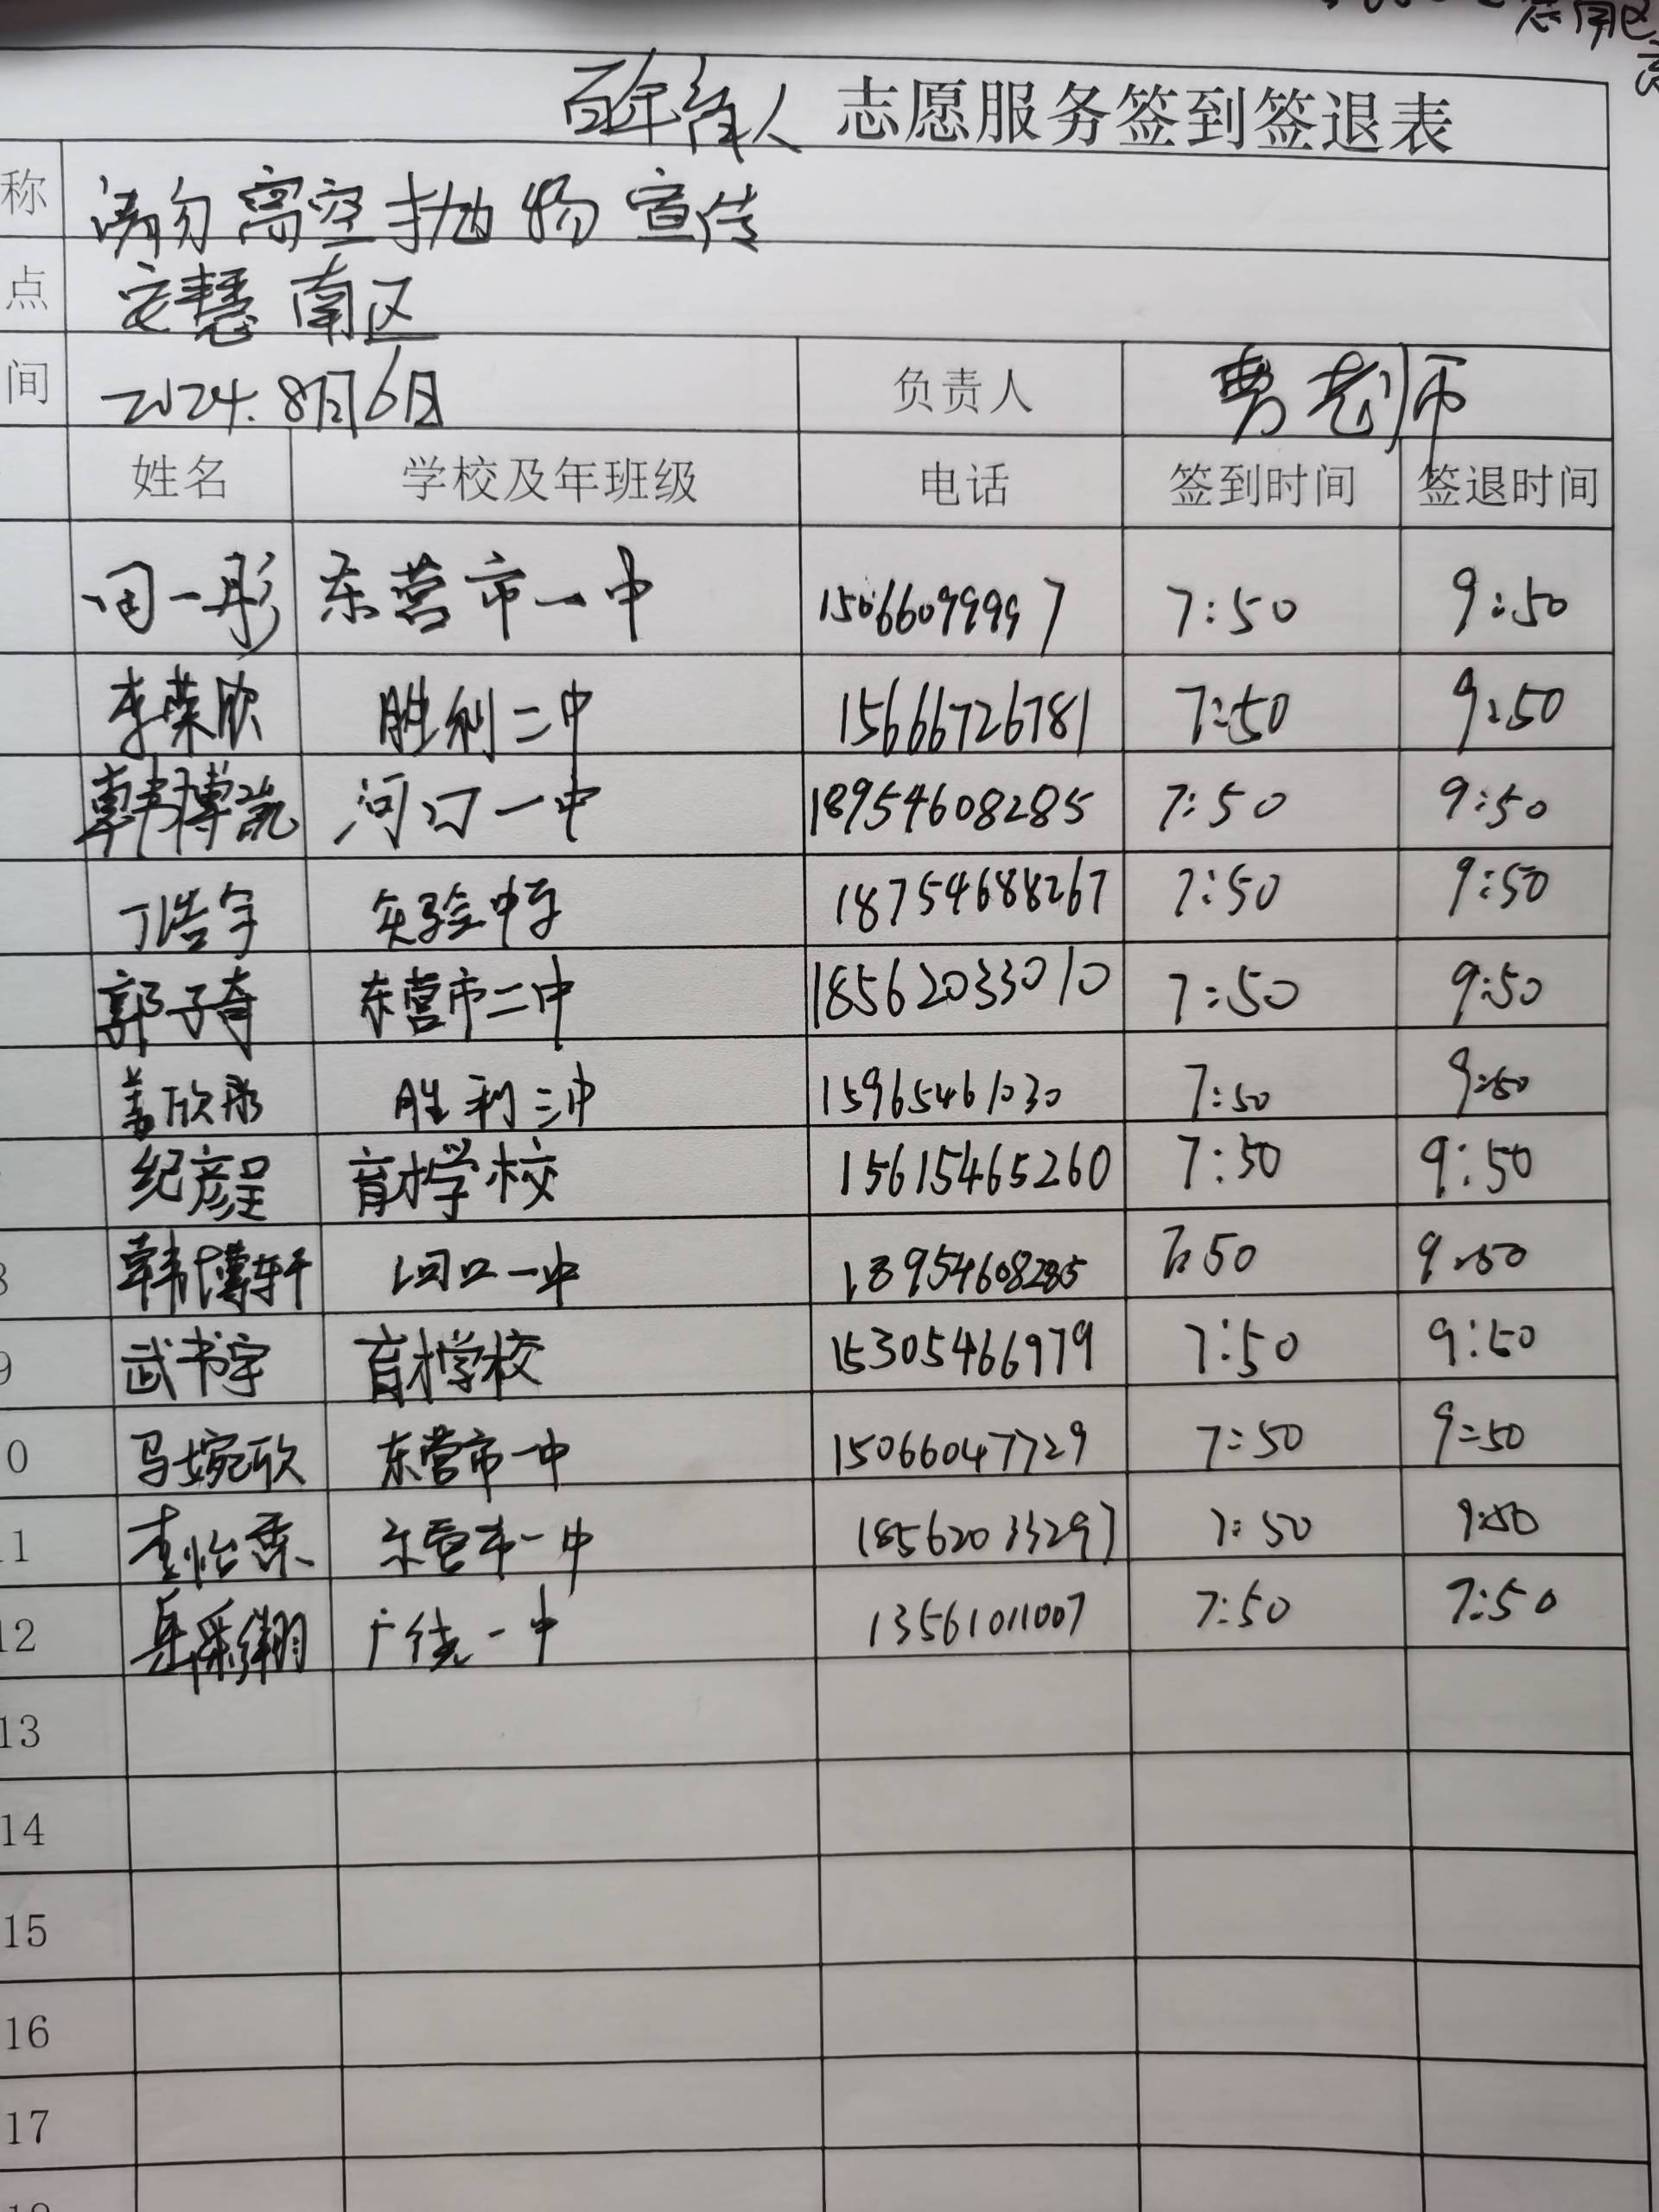 百年育人 志愿服务签到签退表
称 请勿高空抛物宣传
点 安慧南区
间 2024.8月6日 负责人 曹老师
姓名 学校及年班级 电话 签到时间 签退时间
闫一彤 东营市一中 15066099997 7:50 9:50
李荣欣 胜利二中 15666726781 7:50 9:50
韩博凯 河口一中 18954608285 7:50 9:50
丁浩宇 实验中学 18754688267 7:50 9:50
郭子奇 东营市二中 18562033010 7:50 9:50
盖欣彤 胜利三中 15965461030 7:50 9:50
纪彦呈 育才学校 15615465260 7:50 9:50
韩博轩 河口一中 18954608285 7:50 9:50
9 武书宇 育才学校 15305466979 7:50 9:50
0 马婉欣 东营市一中 15066047729 7:50 9:50
11 李怡霖 东营市一中 18562033297 7:50 9:50
12 岳彩翔 广饶一中 13561011007 7:50 7:50
13
14
15
16
17